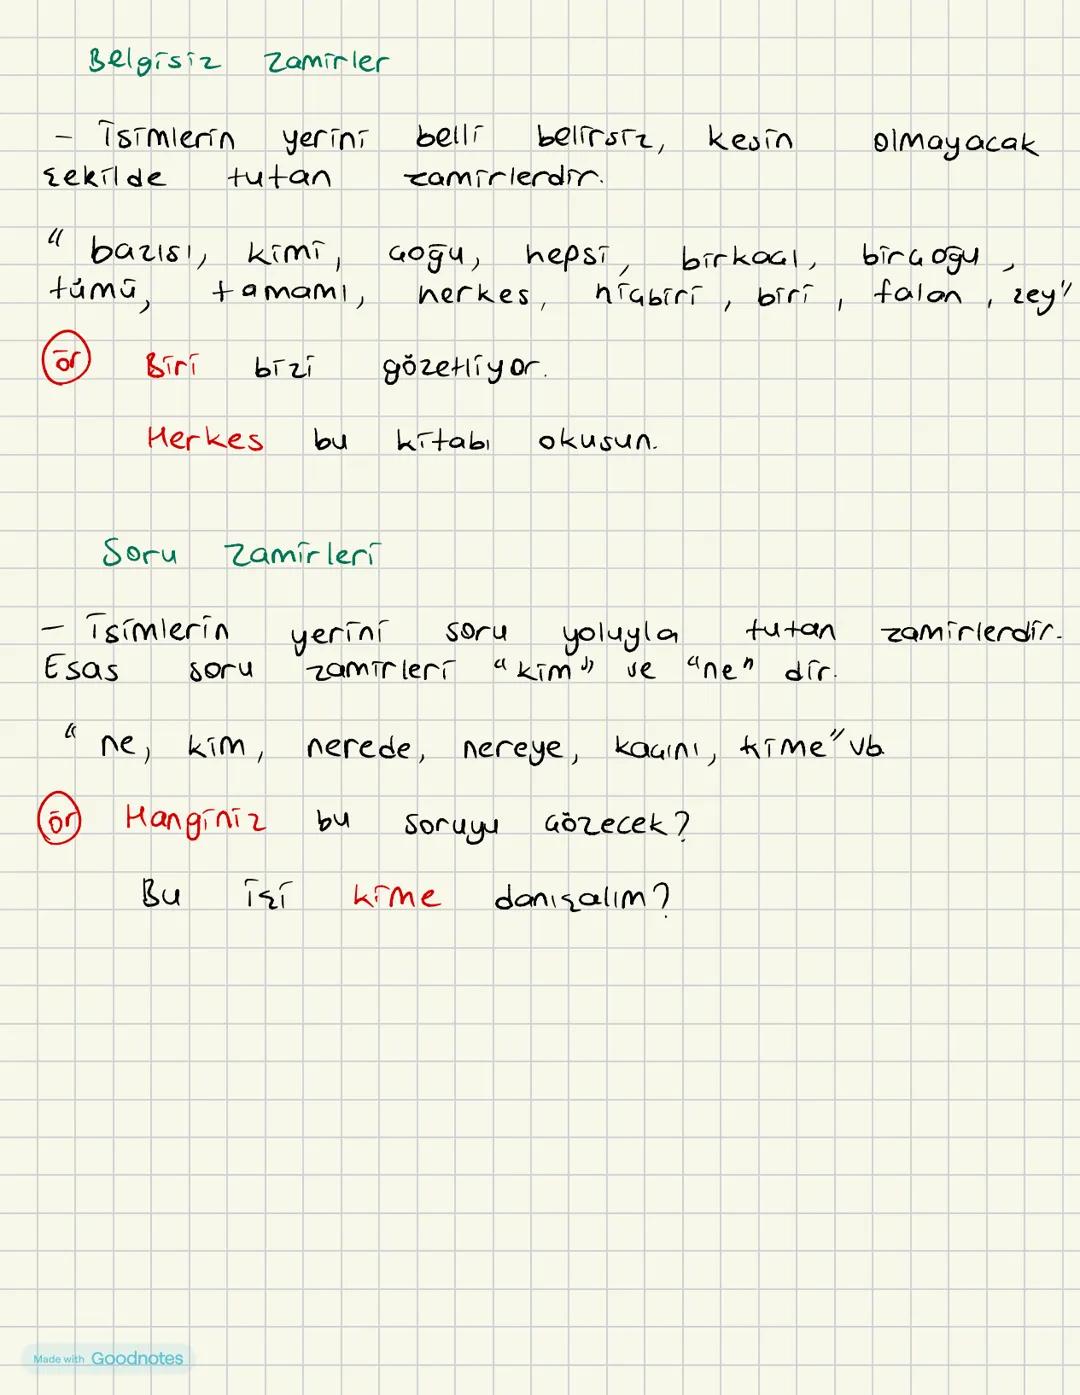 Belgisiz zamirler
- İsimlerin yerini belli belirsiz, kesin olmayacak
şekilde tutan zamirlerdir.
" bazısı, kimi, çoğu, hepsi, birkaçı, birçoğu,
tümü, tamamı, herkes, hiçbiri, biri, falan, şey"
ör Biri bizi gözetliyor.
Herkes bu kitabı okusun.
Soru Zamirleri
- İsimlerin yerini soru yoluyla tutan zamirlerdir.
Esas soru zamirleri "kim" ve "ne" dir.
" ne, kim, nerede, nereye, kaçını, kime" vb
ör Hanginiz bu soruyu çözecek?
Bu işi kime danışalım?
Made with Goodnotes